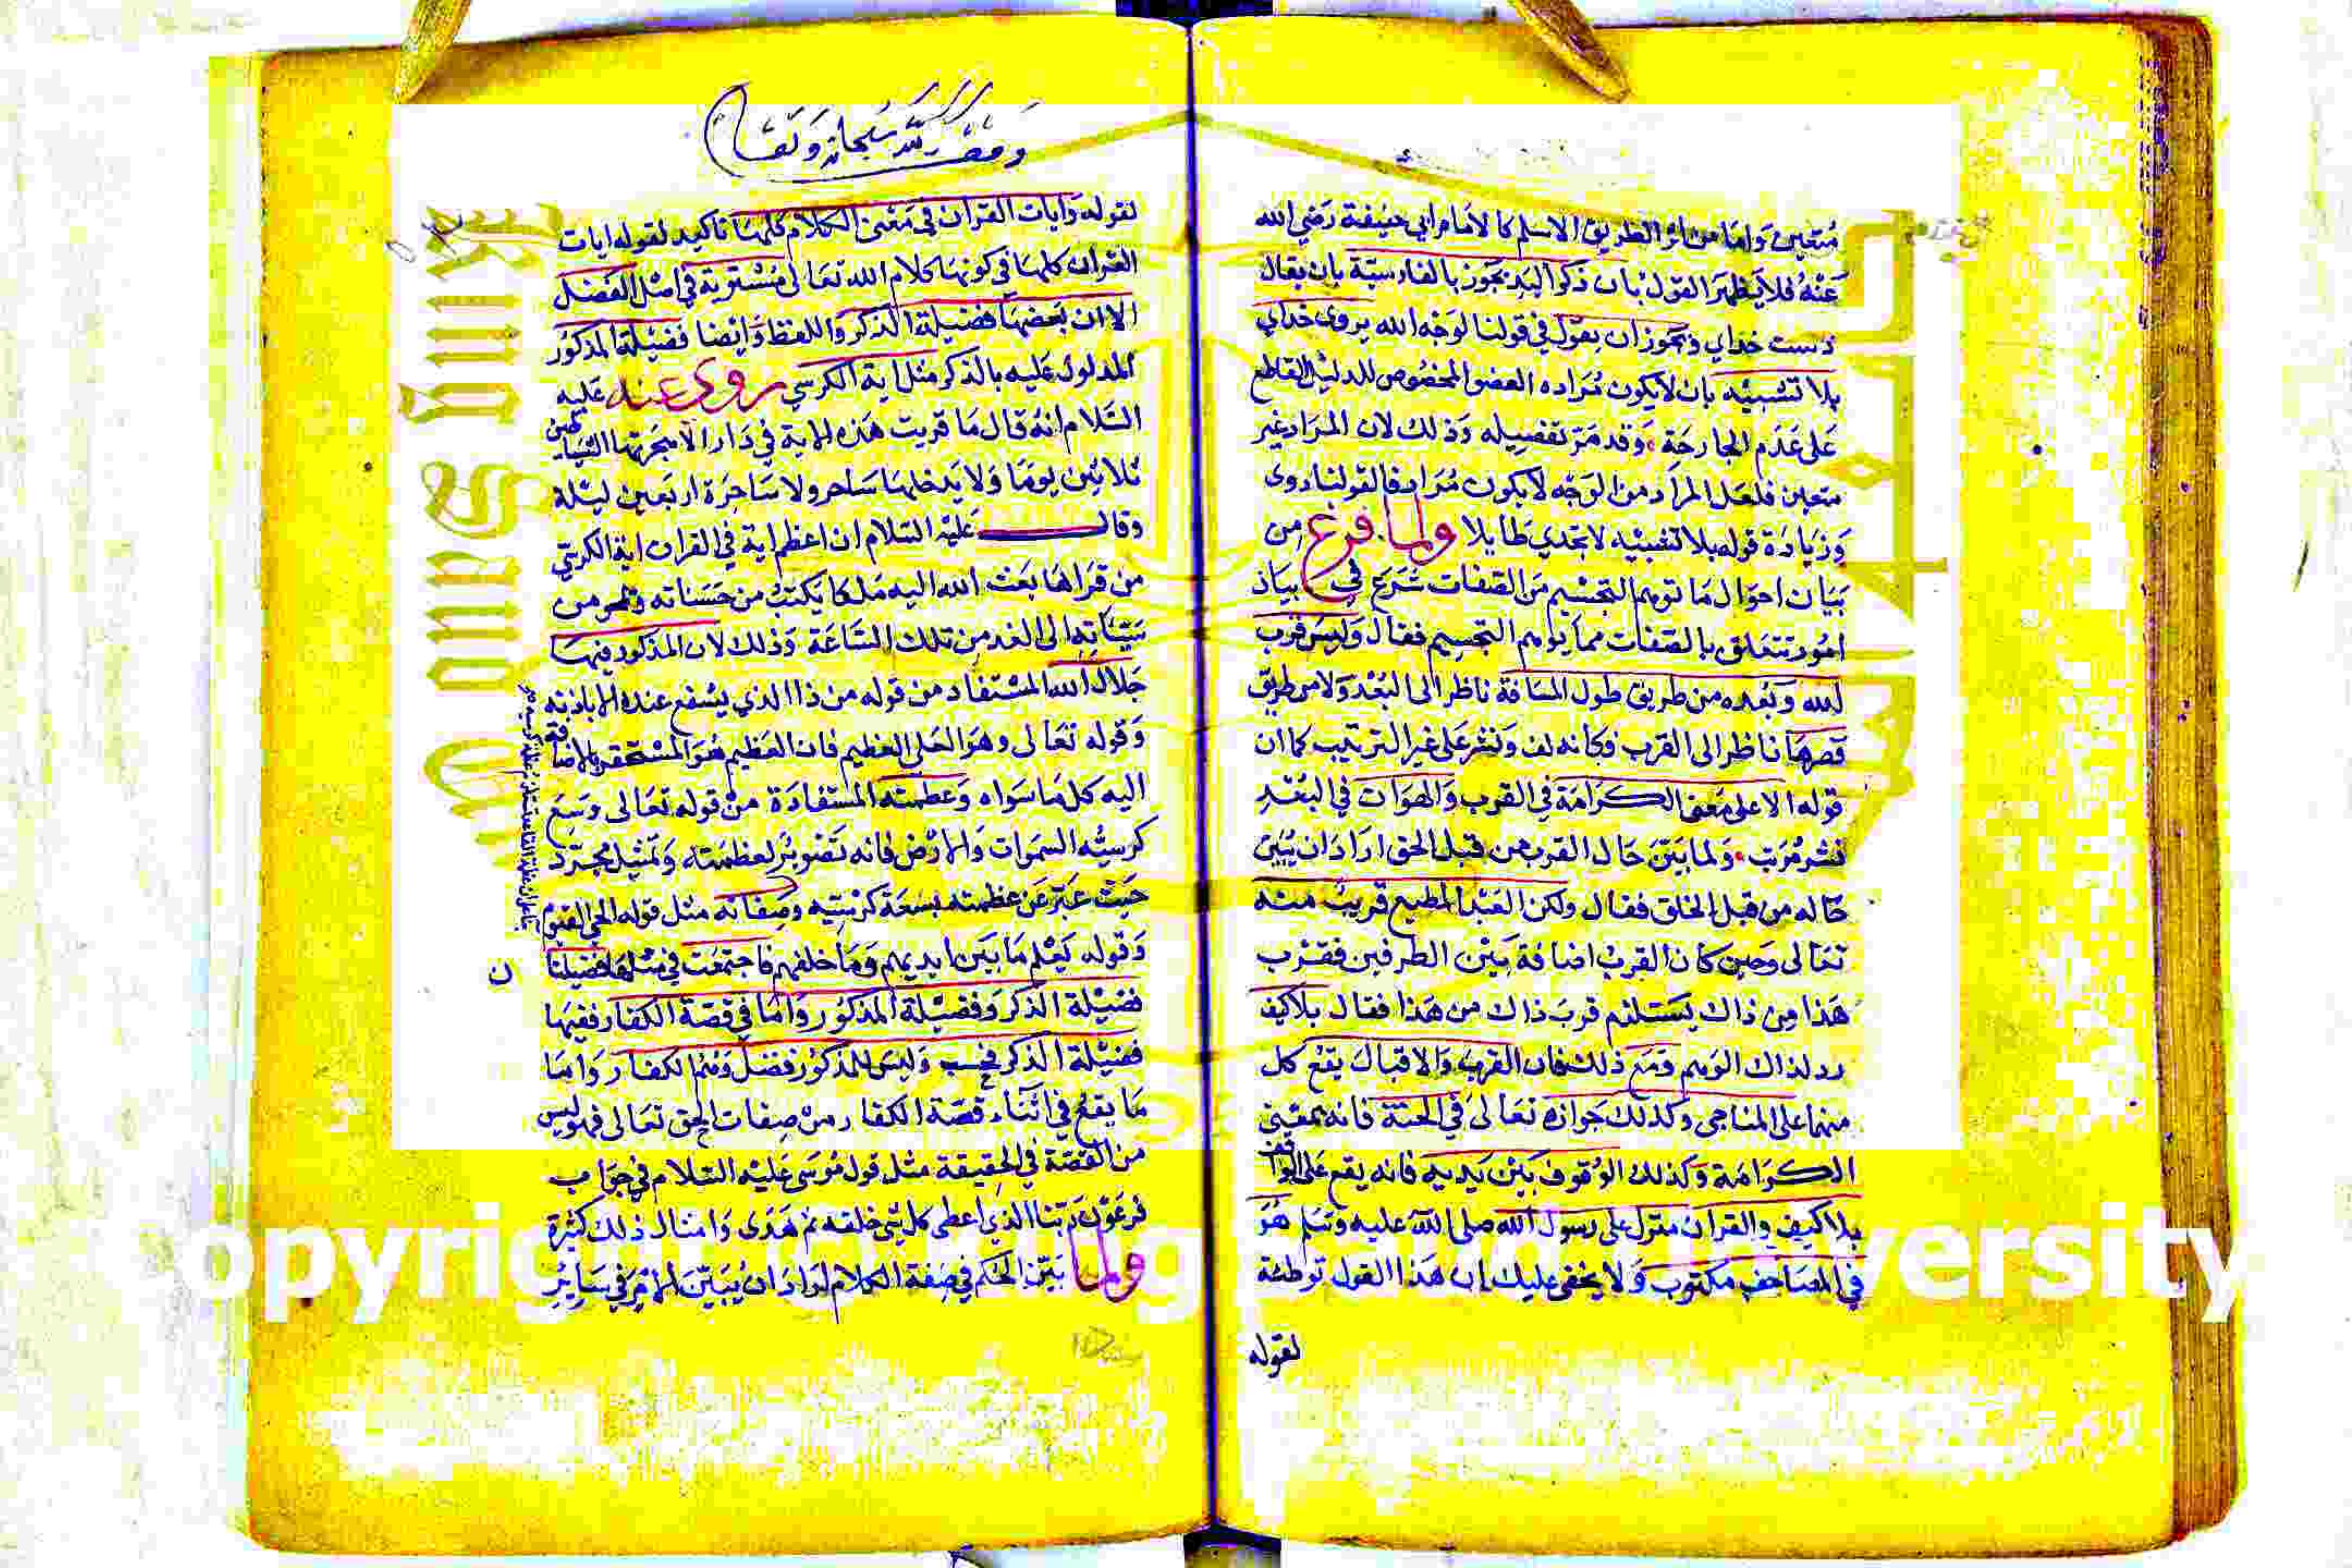 متعين واما من اثر الطريق الاسلم كالامام ابي حنيفة رضي الله
عنه فلا يظهر القول بان ذكر اليد يجوز بالفارسية بان يقال
دست خداي ويجوز ان يقول في قولنا لوجه الله بروى خداي
بلا تشبيه بان لا يكون مراده العضو المخصوص للدليل القاطع
على عدم الجارحة وقد مر تفصيله وذلك لان المراد غير
متعين فلعل المراد من الوجه لا يكون مرادفا لقولنا روى
وزيادة قوله بلا تشبيه لا تجدي طايلا ولما فرغ من
بيان احوال ما توهم التجسيم من الصفات شرع في بيان
امور تتعلق بالصفات مما يوهم التجسيم فقال وليس قرب
لله وبعده من طريق طول المسافة ناظر الى البعد ولا من طريق
قصرها ناظر الى القرب وكانه لف ونشر على غير الترتيب كما ان
قوله الا على معنى الكرامة في القرب والهوان في البعد
نشر مرتب ولما بين حال القرب من قبل الحق اراد ان يبين
حاله من قبل الخلق فقال ولكن العبد المطيع قريب منه
تعالى وحين كان القرب اضافة بين الطرفين فقرب
هذا من ذاك يستلزم قرب ذاك من هذا فقال بلا كيف
رد لذاك الوهم ومع ذلك فان القرب والاقبال يقع كل
منهما على المناجى وكذلك جواره تعالى في الجنة فانه بمعنى
الكرامة وكذلك الوقوف بين يديه فانه يقع على الواقف
بلا كيف والقران منزل على رسول الله صلى الله عليه وسلم هو
في المصاحف مكتوب ولا يخفى عليك ان هذا القول توطئة
لقوله
وقف لله سبحانه وتعالى
لقوله وايات القران في معنى الكلام كلها تاكيد لقوله ايات
القران كلها في كونها كلام الله تعالى مستوية في اصل الفضل
الا ان بعضها فضيلة الذكر واللفظ وايضا فضيلة المذكور
المدلول عليه بالذكر مثل اية الكرسي روى عنه عليه
السلام انه قال ما قريت هذه الاية في دار الا هجرتها الشياطين
ثلاثين يوما ولا يدخلها ساحر ولا ساحرة اربعين ليلة
وقال عليه السلام ان اعظم اية في القران اية الكرسي
من قراها بعث الله اليه ملكا يكتب من حسناته ويمحو من
سيئاته الى الغد من تلك الساعة وذلك لان المذكور فيها
جلال الله المستفاد من قوله من ذا الذي يشفع عنده الا باذنه
وقوله تعالى وهو العلي العظيم فان العظيم هو المستحقر بالاضافة
اليه كل ما سواه وعظمته المستفادة من قوله تعالى وسع
كرسيه السموات والارض فانه تصوير لعظمته وتمثيل مجرد
حيث عبر عن عظمته بسعة كرسيه وصفاته مثل قوله الحي القيوم
وقوله يعلم ما بين ايديهم وما خلفهم فاجتمعت في مثلها فضيلتا
ن
فضيلة الذكر وفضيلة المذكور واما في قصة الكفار ففيها
فضيلة الذكر فحسب وليس للمذكور فضل وهم الكفار واما
ما يقع في اثناء قصة الكفار من صفات الحق تعالى فهو ليس
من القصة في الحقيقة مثل قول موسى عليه السلام في جواب
فرعون ربنا الذي اعطى كل شي خلقه ثم هدى وامثال ذلك كثيرة
ولما بين الحكم في صفة الكلام اراد ان يبين الامر في ساير
opyrig versity